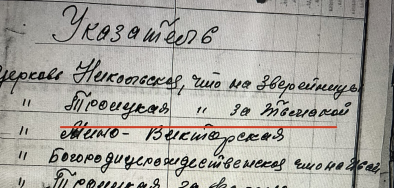 Указатель
Церковь Никольская, что на Зверенице
" Троицкая " за Тьмакой
" Мино-Викторская
" Богородицерождественская что на
" Троицкая за